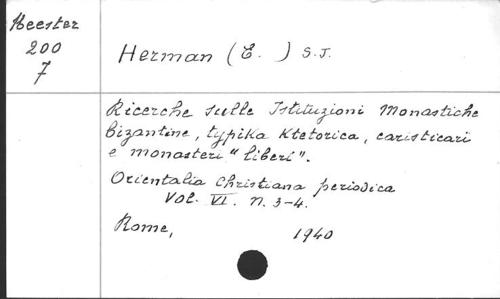 Meester
200
7
Herman (E. ) S.J.
Ricerche sulle Istituzioni Monastiche
bizantine, typika ktetorica, caristicari
e monasteri "liberi".
Orientalia Christiana periodica
Vol. VI. N. 3-4.
Rome, 1940